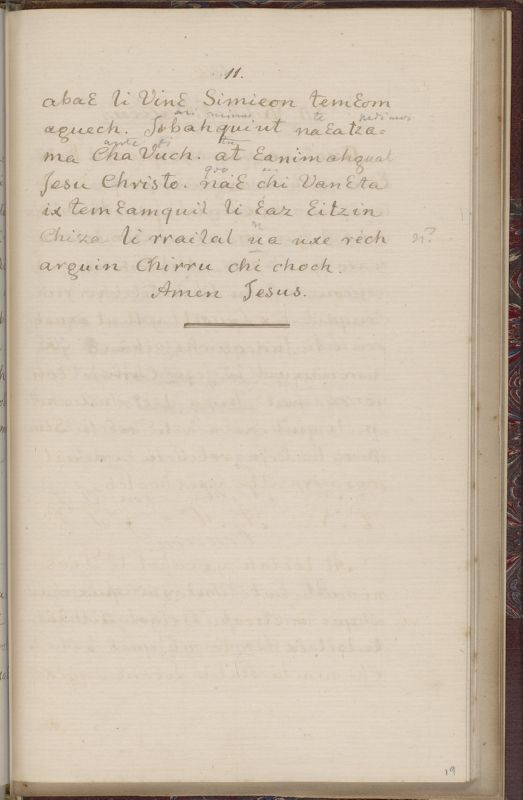 11.
abaɛ li Vinɛ Simieon temɛom
ani minus te pedimos
aguech. Jobahquiut naɛatza=
ante ti tu
ma Cha Vuch. at ɛanimahgual
quo ui
Jesu Christo. naɛ chi Vanɛta
ix temɛamquil li ɛaz ɛitzin
n
Chiza li rrailal ua uxe réch n?
arguin Chirru chi choch
Amen Jesus.
19